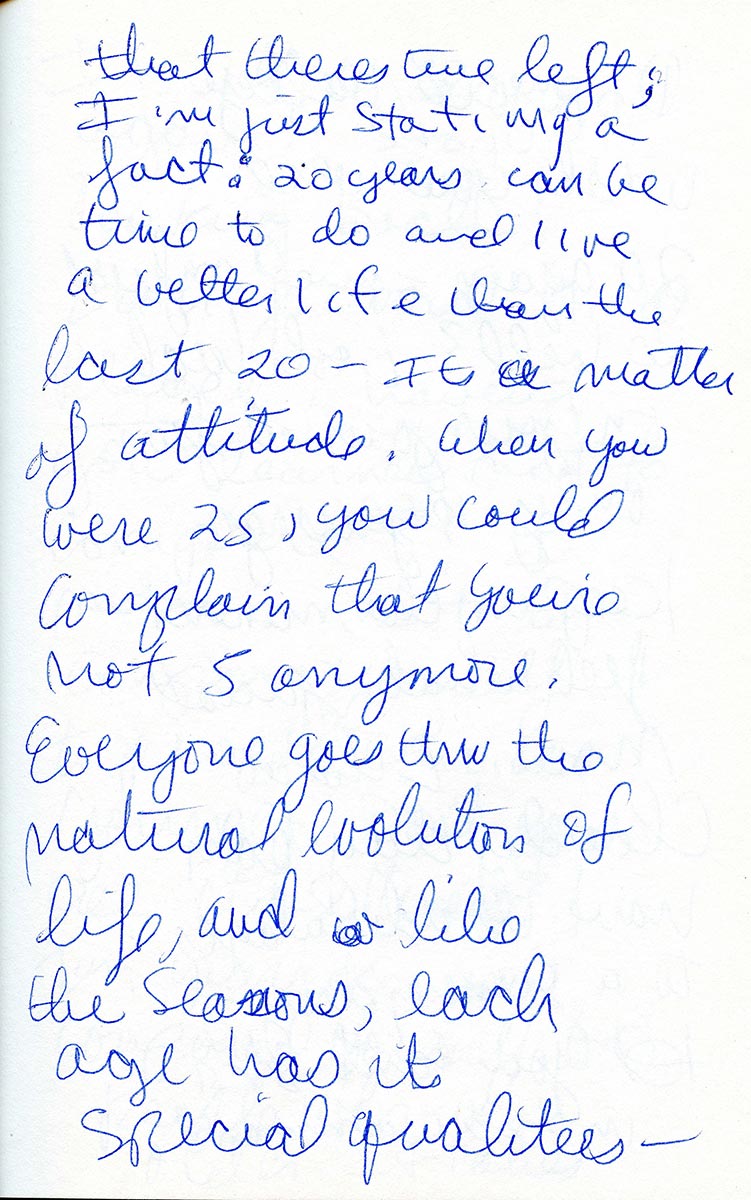 that theres time left;
I'm just stating a
fact: 20 years can be
time to do and live
a better life than the
last 20 - Its a matter
of attitude. When you
were 25, you could
complain that you're
not 5 anymore.
Everyone goes thru the
natural evolution of
life, and like
the seasons, each
age has its
special qualities -